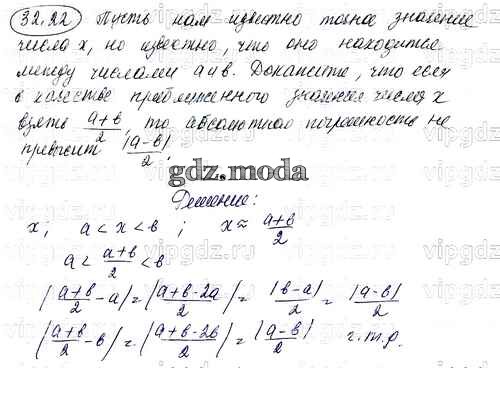 32.22 Пусть нам известно точное значение
числа x, но известно, что оно находится
между числами a и b. Докажите, что если
в качестве приближенного значения числа x
взять (a+b)/2, то абсолютная погрешность не
превысит |a-b|/2.
gdz.moda
Решение:
x; a < x < b ; x ≈ (a+b)/2
a < (a+b)/2 < b
|(a+b)/2 - a| = |(a+b-2a)/2| = |b-a|/2 = |a-b|/2
|(a+b)/2 - b| = |(a+b-2b)/2| = |a-b|/2 ч.т.д.
vipgdz.ru